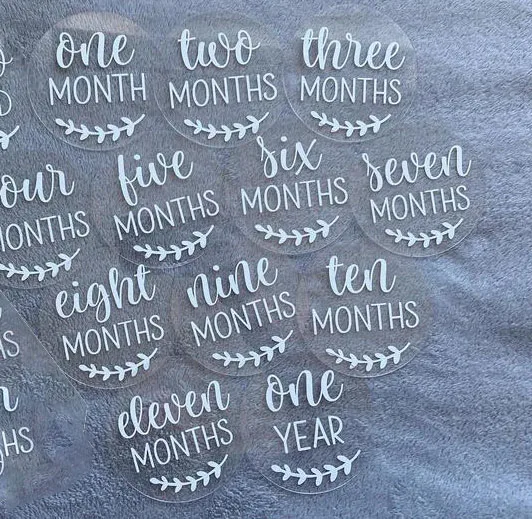 one
MONTH
two
MONTHS
three
MONTHS
four
MONTHS
five
MONTHS
six
MONTHS
seven
MONTHS
eight
MONTHS
nine
MONTHS
ten
MONTHS
eleven
MONTHS
one
YEAR